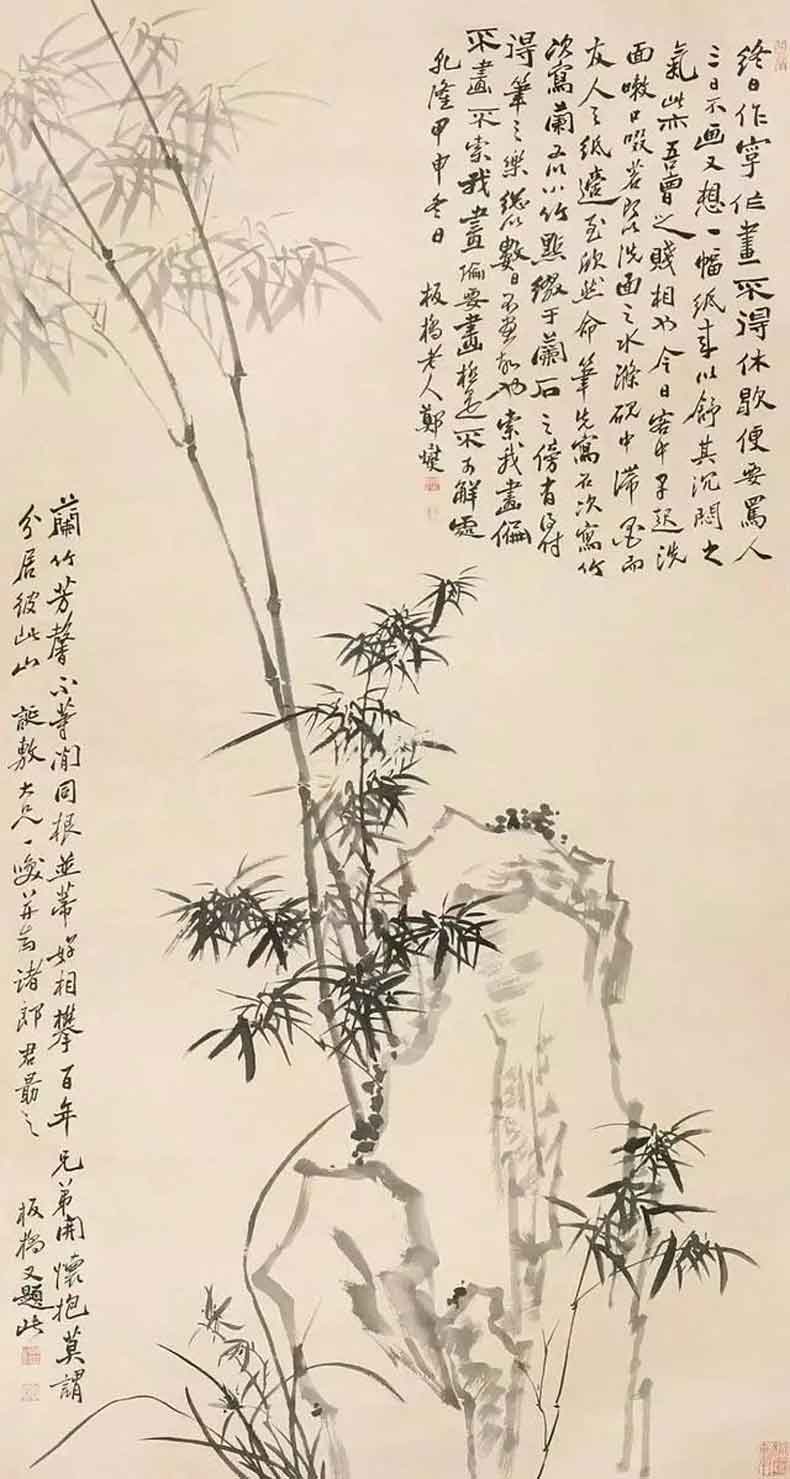 終日作字作畫不得休歇便要罵人
三日不画又想一幅紙來以舒其沉悶之
氣此亦吾曹之賤相也今日客中早起洗
面嗽口啜茗即以洗面之水滌硯中滯墨而
友人之紙適至欣然命筆先寫石次寫竹
次寫蘭又以小竹點綴于蘭石之傍有
得筆之樂總以數日不畫故也索我畫偏
不畫不索我畫偏要畫極是不可解處
乾隆甲申冬日 板橋老人鄭燮
蘭竹芳馨不等閒同根並蒂好相攀百年兄弟開懷抱莫謂
分居彼此山 誕敷大兄一咲并示諸郎君勗之 板橋又題此